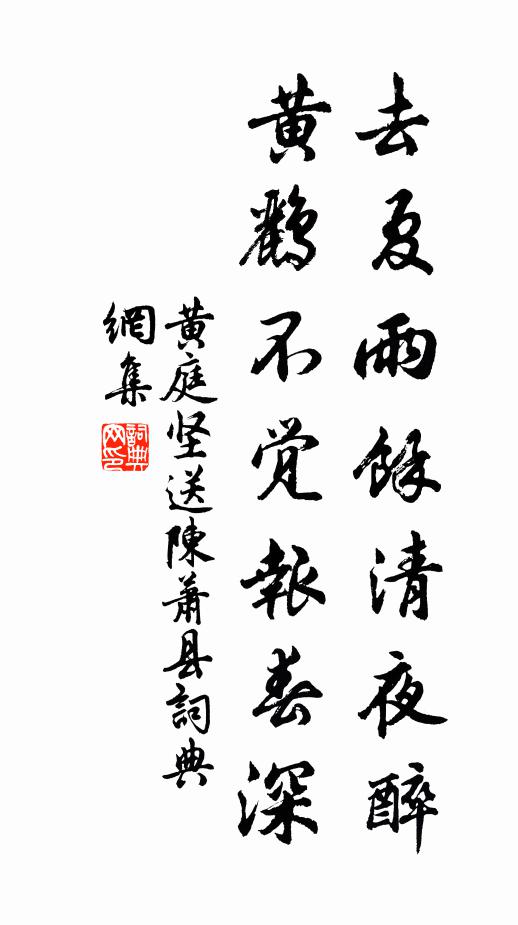 去夏雨餘清夜醉
黄鸝不觉報春深
黄庭坚送陳蕭县詞典
網集
詞典网印